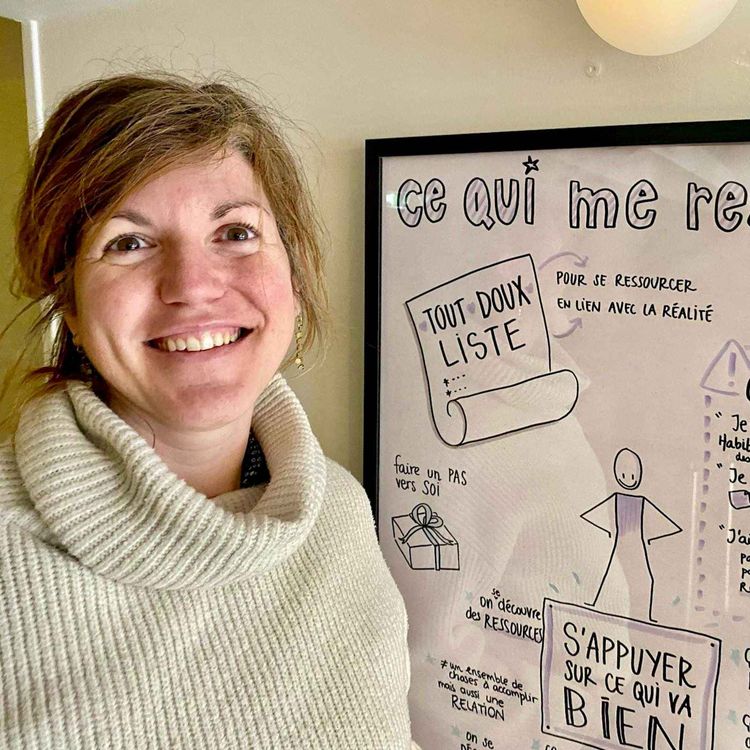 ce QUI me re
TOUT DOUX
LISTE
POUR SE RESSOURCER
EN LIEN AVEC LA RÉALITÉ
faire un PAS
vers SOI
"Je
Habi
des
"Je
"J'ai
se
on découvre
des RESSOURCES
≠ un ensemble de
choses à accomplir
mais aussi une
RELATION
on se
S'APPUYER
SUR CE QUI VA
BIEN